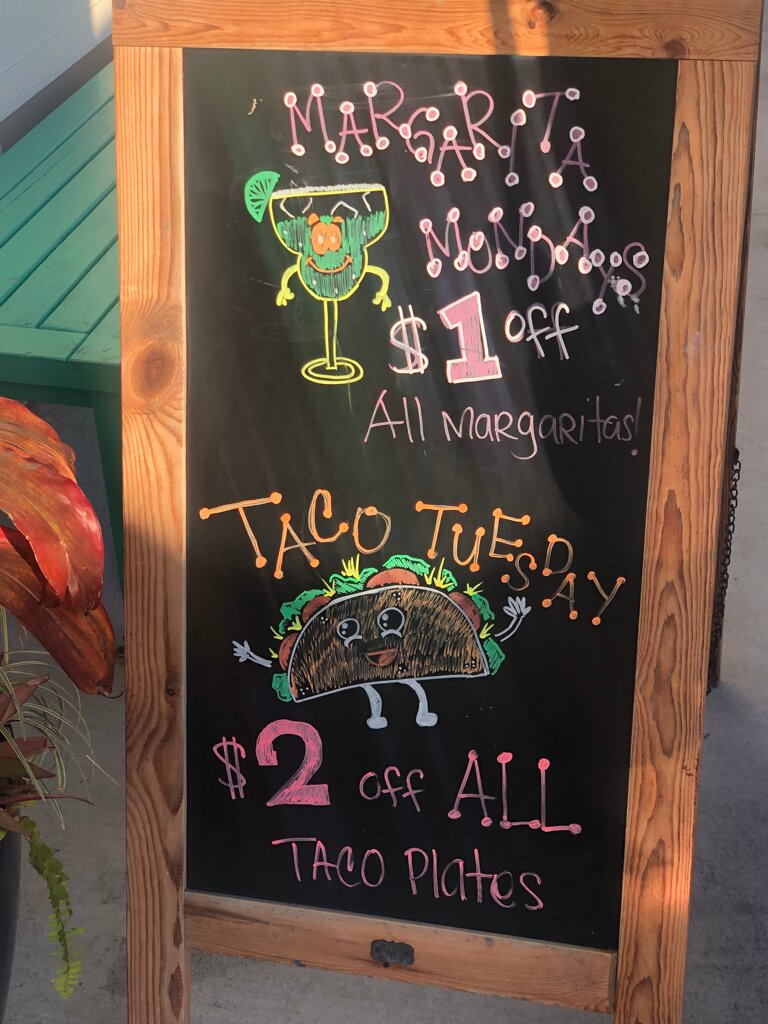 MARGARITA
MONDAYS
$1 off
All MARgaRitas!
TACO TUESDAY
$2 off ALL
TACO Plates